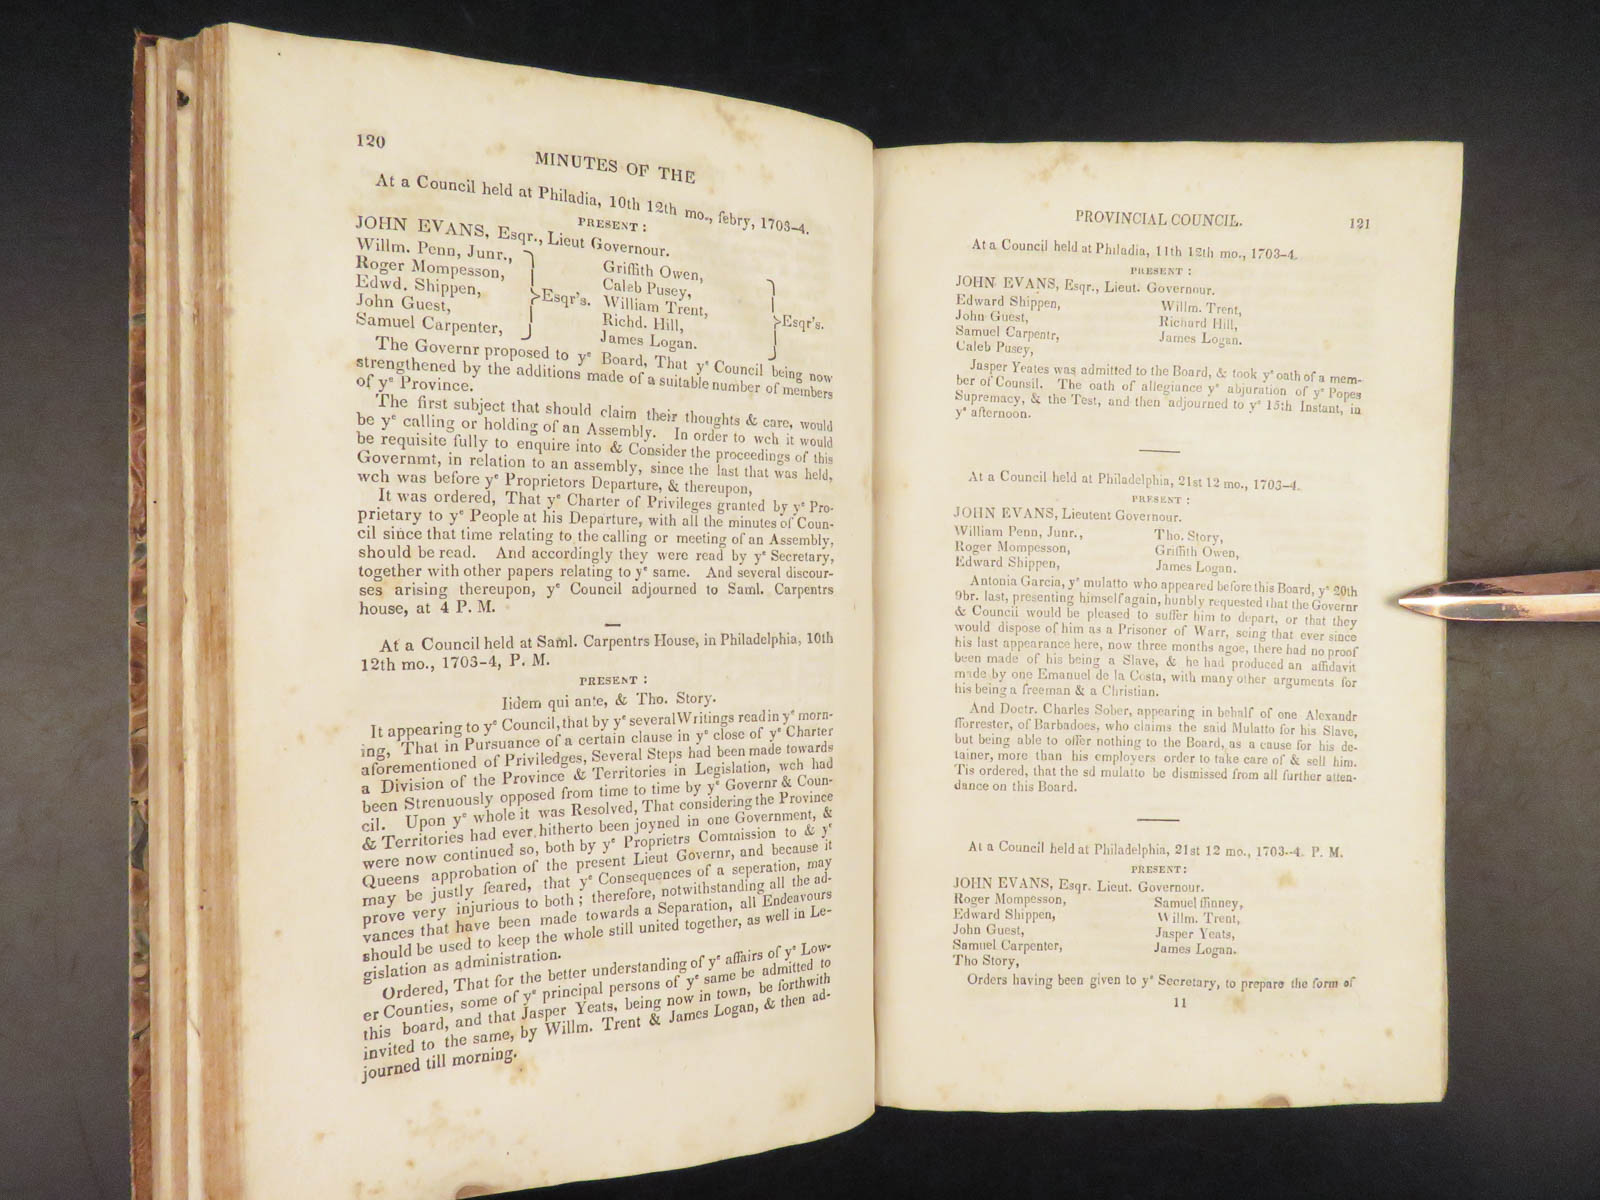 120
MINUTES OF THE
At a Council held at Philadia, 10th 12th mo., febry, 1703-4.
PRESENT :
JOHN EVANS, Esqr., Lieut Governour.
Willm. Penn, Junr.,
Roger Mompesson,
Edwd. Shippen,
John Guest,
Samuel Carpenter,
Esqr's.
Griffith Owen,
Caleb Pusey,
William Trent,
Richd. Hill,
James Logan.
Esqr's.
The Governr proposed to yᵉ Board, That yᵉ Council being now
strengthened by the additions made of a suitable number of members
of yᵉ Province.
The first subject that should claim their thoughts & care, would
be yᵉ calling or holding of an Assembly. In order to wch it would
be requisite fully to enquire into & Consider the proceedings of this
Governmt, in relation to an assembly, since the last that was held,
wch was before yᵉ Proprietors Departure, & thereupon,
It was ordered, That yᵉ Charter of Privileges granted by yᵉ Pro-
prietary to yᵉ People at his Departure, with all the minutes of Coun-
cil since that time relating to the calling or meeting of an Assembly,
should be read. And accordingly they were read by yᵉ Secretary,
together with other papers relating to yᵉ same. And several discour-
ses arising thereupon, yᵉ Council adjourned to Saml. Carpentrs
house, at 4 P. M.
At a Council held at Saml. Carpentrs House, in Philadelphia, 10th
12th mo., 1703-4, P. M.
PRESENT :
Iidem qui ante, & Tho. Story.
It appearing to yᵉ Council, that by yᵉ several Writings read in yᵉ morn-
ing, That in Pursuance of a certain clause in yᵉ close of yᵉ Charter
aforementioned of Priviledges, Several Steps had been made towards
a Division of the Province & Territories in Legislation, wch had
been Strenuously opposed from time to time by yᵉ Governr & Coun-
cil. Upon yᵉ whole it was Resolved, That considering the Province
& Territories had ever hitherto been joyned in one Government, &
were now continued so, both by yᵉ Proprietrs Commission to & yᵉ
Queens approbation of the present Lieut Governr, and because it
may be justly feared, that yᵉ Consequences of a seperation, may
prove very injurious to both ; therefore, notwithstanding all the ad-
vances that have been made towards a Separation, all Endeavours
should be used to keep the whole still united together, as well in Le-
gislation as administration.
Ordered, That for the better understanding of yᵉ affairs of yᵉ Low-
er Counties, some of yᵉ principal persons of yᵉ same be admitted to
this board, and that Jasper Yeats, being now in town, be forthwith
invited to the same, by Willm. Trent & James Logan, & then ad-
journed till morning.
PROVINCIAL COUNCIL.
121
At a Council held at Philadia, 11th 12th mo., 1703-4.
PRESENT :
JOHN EVANS, Esqr., Lieut. Governour.
Edward Shippen,
John Guest,
Samuel Carpentr,
Caleb Pusey,
Willm. Trent,
Richard Hill,
James Logan.
Jasper Yeates was admitted to the Board, & took yᵉ oath of a mem-
ber of Counsil. The oath of allegiance yᵉ abjuration of yᵉ Popes
Supremacy, & the Test, and then adjourned to yᵉ 15th Instant, in
yᵉ afternoon.
At a Council held at Philadelphia, 21st 12 mo., 1703-4.
PRESENT :
JOHN EVANS, Lieutent Governour.
William Penn, Junr.,
Roger Mompesson,
Edward Shippen,
Tho. Story,
Griffith Owen,
James Logan.
Antonia Garcia, yᵉ mulatto who appeared before this Board, yᵉ 20th
9br. last, presenting himself again, hunbly requested that the Governr
& Council would be pleased to suffer him to depart, or that they
would dispose of him as a Prisoner of Warr, seing that ever since
his last appearance here, now three months agoe, there had no proof
been made of his being a Slave, & he had produced an affidavit
made by one Emanuel de la Costa, with many other arguments for
his being a freeman & a Christian.
And Doctr. Charles Sober, appearing in behalf of one Alexandr
fforrester, of Barbadoes, who claims the said Mulatto for his Slave,
but being able to offer nothing to the Board, as a cause for his de-
tainer, more than his employers order to take care of & sell him.
Tis ordered, that the sd mulatto be dismissed from all further atten-
dance on this Board.
At a Council held at Philadelphia, 21st 12 mo., 1703--4. P. M.
PRESENT:
JOHN EVANS, Esqr. Lieut. Governour.
Roger Mompesson,
Edward Shippen,
John Guest,
Samuel Carpenter,
Tho Story,
Samuel ffinney,
Willm. Trent,
Jasper Yeats,
James Logan.
Orders having been given to yᵉ Secretary, to prepare the form of
11